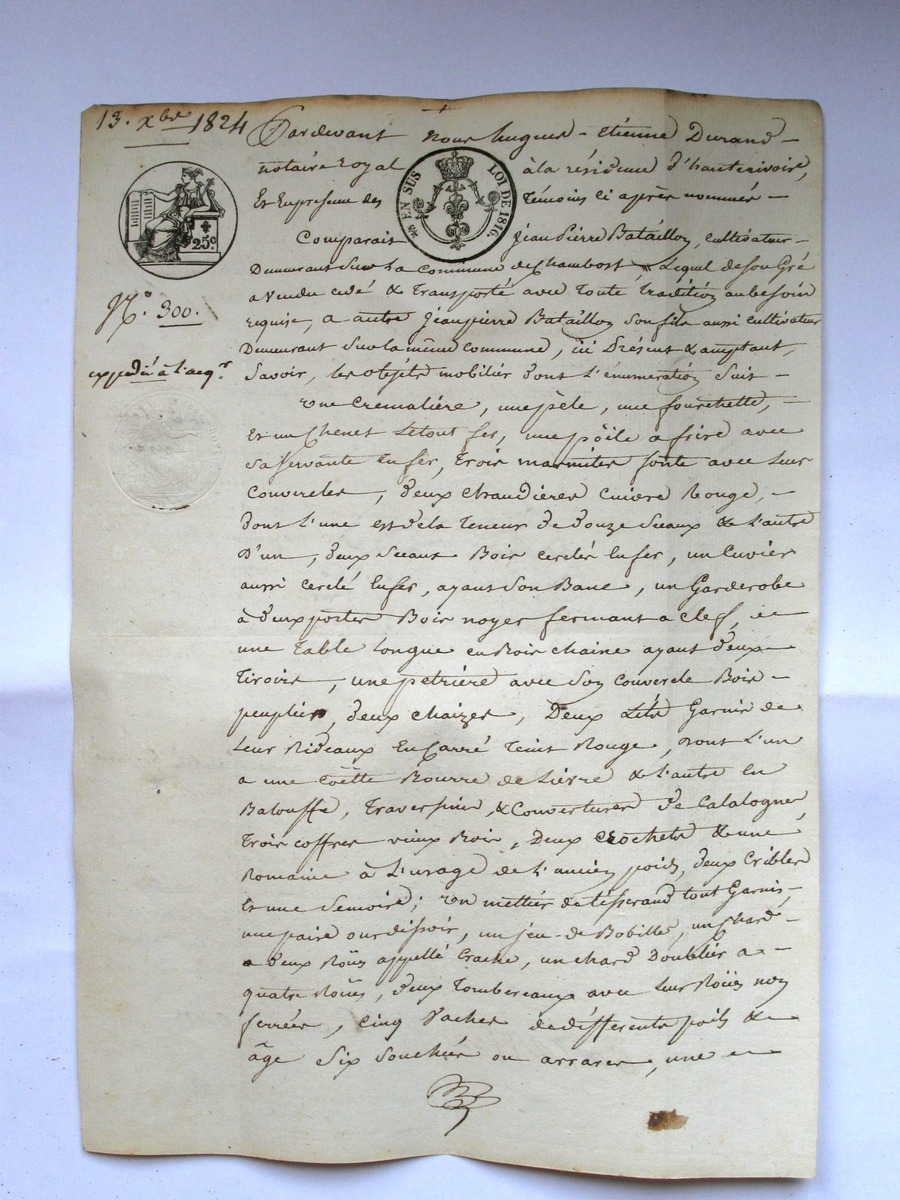 13. xbre 1824
Pardevant nous hugues-étienne Durand
notaire royal à la résidence d'hauterivoire,
Et En presence des Témoins ci après nommés
25c
EN SUS LOI DE 1816.
Comparait Jean Pierre Bataillon, cultivateur
Demeurant sur la Commune de Chambost Lequel de son Gré
a Vendu cedé & Transporté avec Toute Tradition au besoin
N.o 300.
requise, a autre Jean pierre Bataillon son fils aussi cultivateur
Demeurant sur la même commune, ici Présent & acceptant,
expedié à l'acqr
Savoir, les objets mobilier dont L'énumeration suit
Une Cremalière, une pèle, une fourchette,
Et un Chenet Le tout fer, une pöile a frire avec
Sa Servante En fer, trois marmites fonte avec leur
Couvercles, deux Chaudières Cuivre Rouge,
dont L'une est de la Teneur De Douze Seaux & L'autre
D'un, deux Seaux Bois cerclés En fer, un Cuvier
aussi cerclé En fer, ayant Son Banc, un Garderobe
à deux portes Bois noyer fermant a Clef,
une Table longue en Bois Chaine ayant deux
Tiroirs, une petrière avec Son Couvercle Bois
peuplier, deux Chaizes, Deux Lits Garnis de
Leur Rideaux En Carré Teint Rouge, dont L'un
a une Coëtte Bourre de Lievre & L'autre En
Balouffe, Traversins, & Couvertures de Catalogne,
Trois coffres vieux Bois, Deux crochets & une
Romaine à L'usage de L'ancien poids, deux Cribles
Et une Semoire; Un mettier de tisserand tout Garnis,
une paire ourdissoir, un jeu de Bobilles, un chard
a deux Roües appellé Crache, un chard Doublier a
quatre Roües, deux Tombereaux avec Leur Roües non
ferrées, Cinq Vaches de différents poils &
âge Six Souchées ou arrares, une